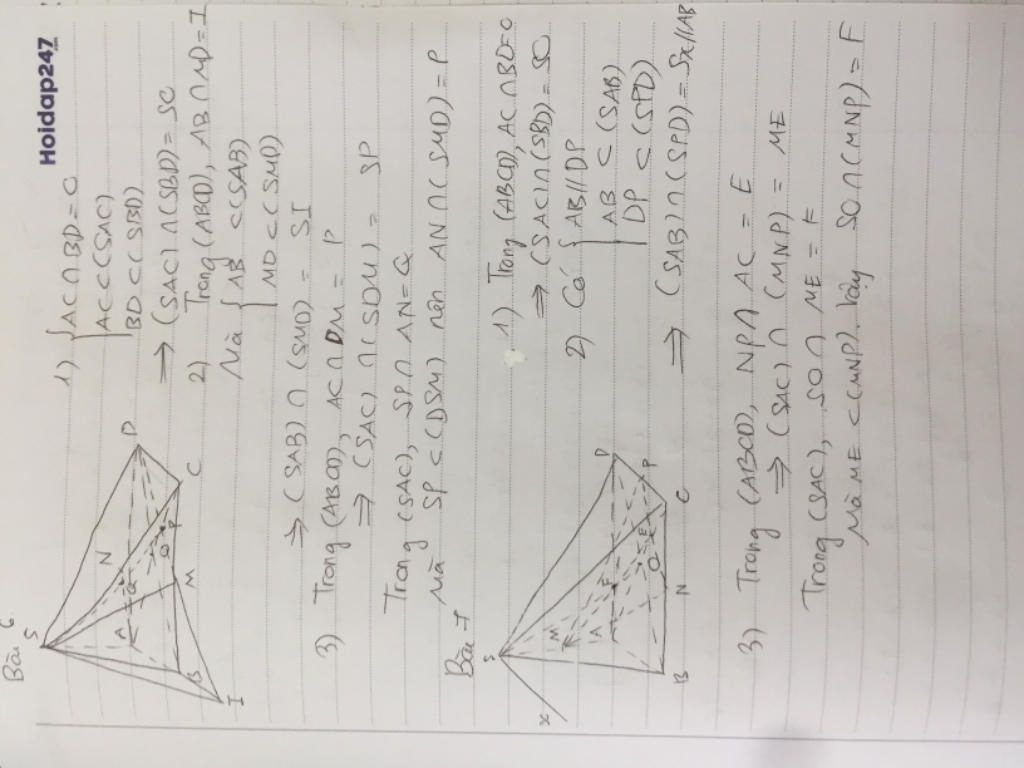 Hoidap247
Bài 6
S
N
D
A
Q
O
P
C
B
M
I
1) { AC ∩ BD = O
AC ⊂ (SAC)
BD ⊂ (SBD)
⇒ (SAC) ∩ (SBD) = SO
2) Trong (ABCD), AB ∩ MD = I
Mà { AB ⊂ (SAB)
MD ⊂ (SMD)
⇒ (SAB) ∩ (SMD) = SI
3) Trong (ABCD), AC ∩ DM = P
⇒ (SAC) ∩ (SDM) = SP
Trong (SAC), SP ∩ AN = Q
Mà SP ⊂ (DSM) nên AN ∩ (SMD) = P
Bài 7
S
x
M
D
A
F
P
E
O
C
B
N
1) Trong (ABCD), AC ∩ BD = O
⇒ (SAC) ∩ (SBD) = SO
2) Có { AB // DP
AB ⊂ (SAB)
DP ⊂ (SPD)
⇒ (SAB) ∩ (SPD) = Sx // AB
3) Trong (ABCD), NP ∩ AC = E
⇒ (SAC) ∩ (MNP) = ME
Trong (SAC), SO ∩ ME = F
Mà ME ⊂ (MNP). Vậy SO ∩ (MNP) = F